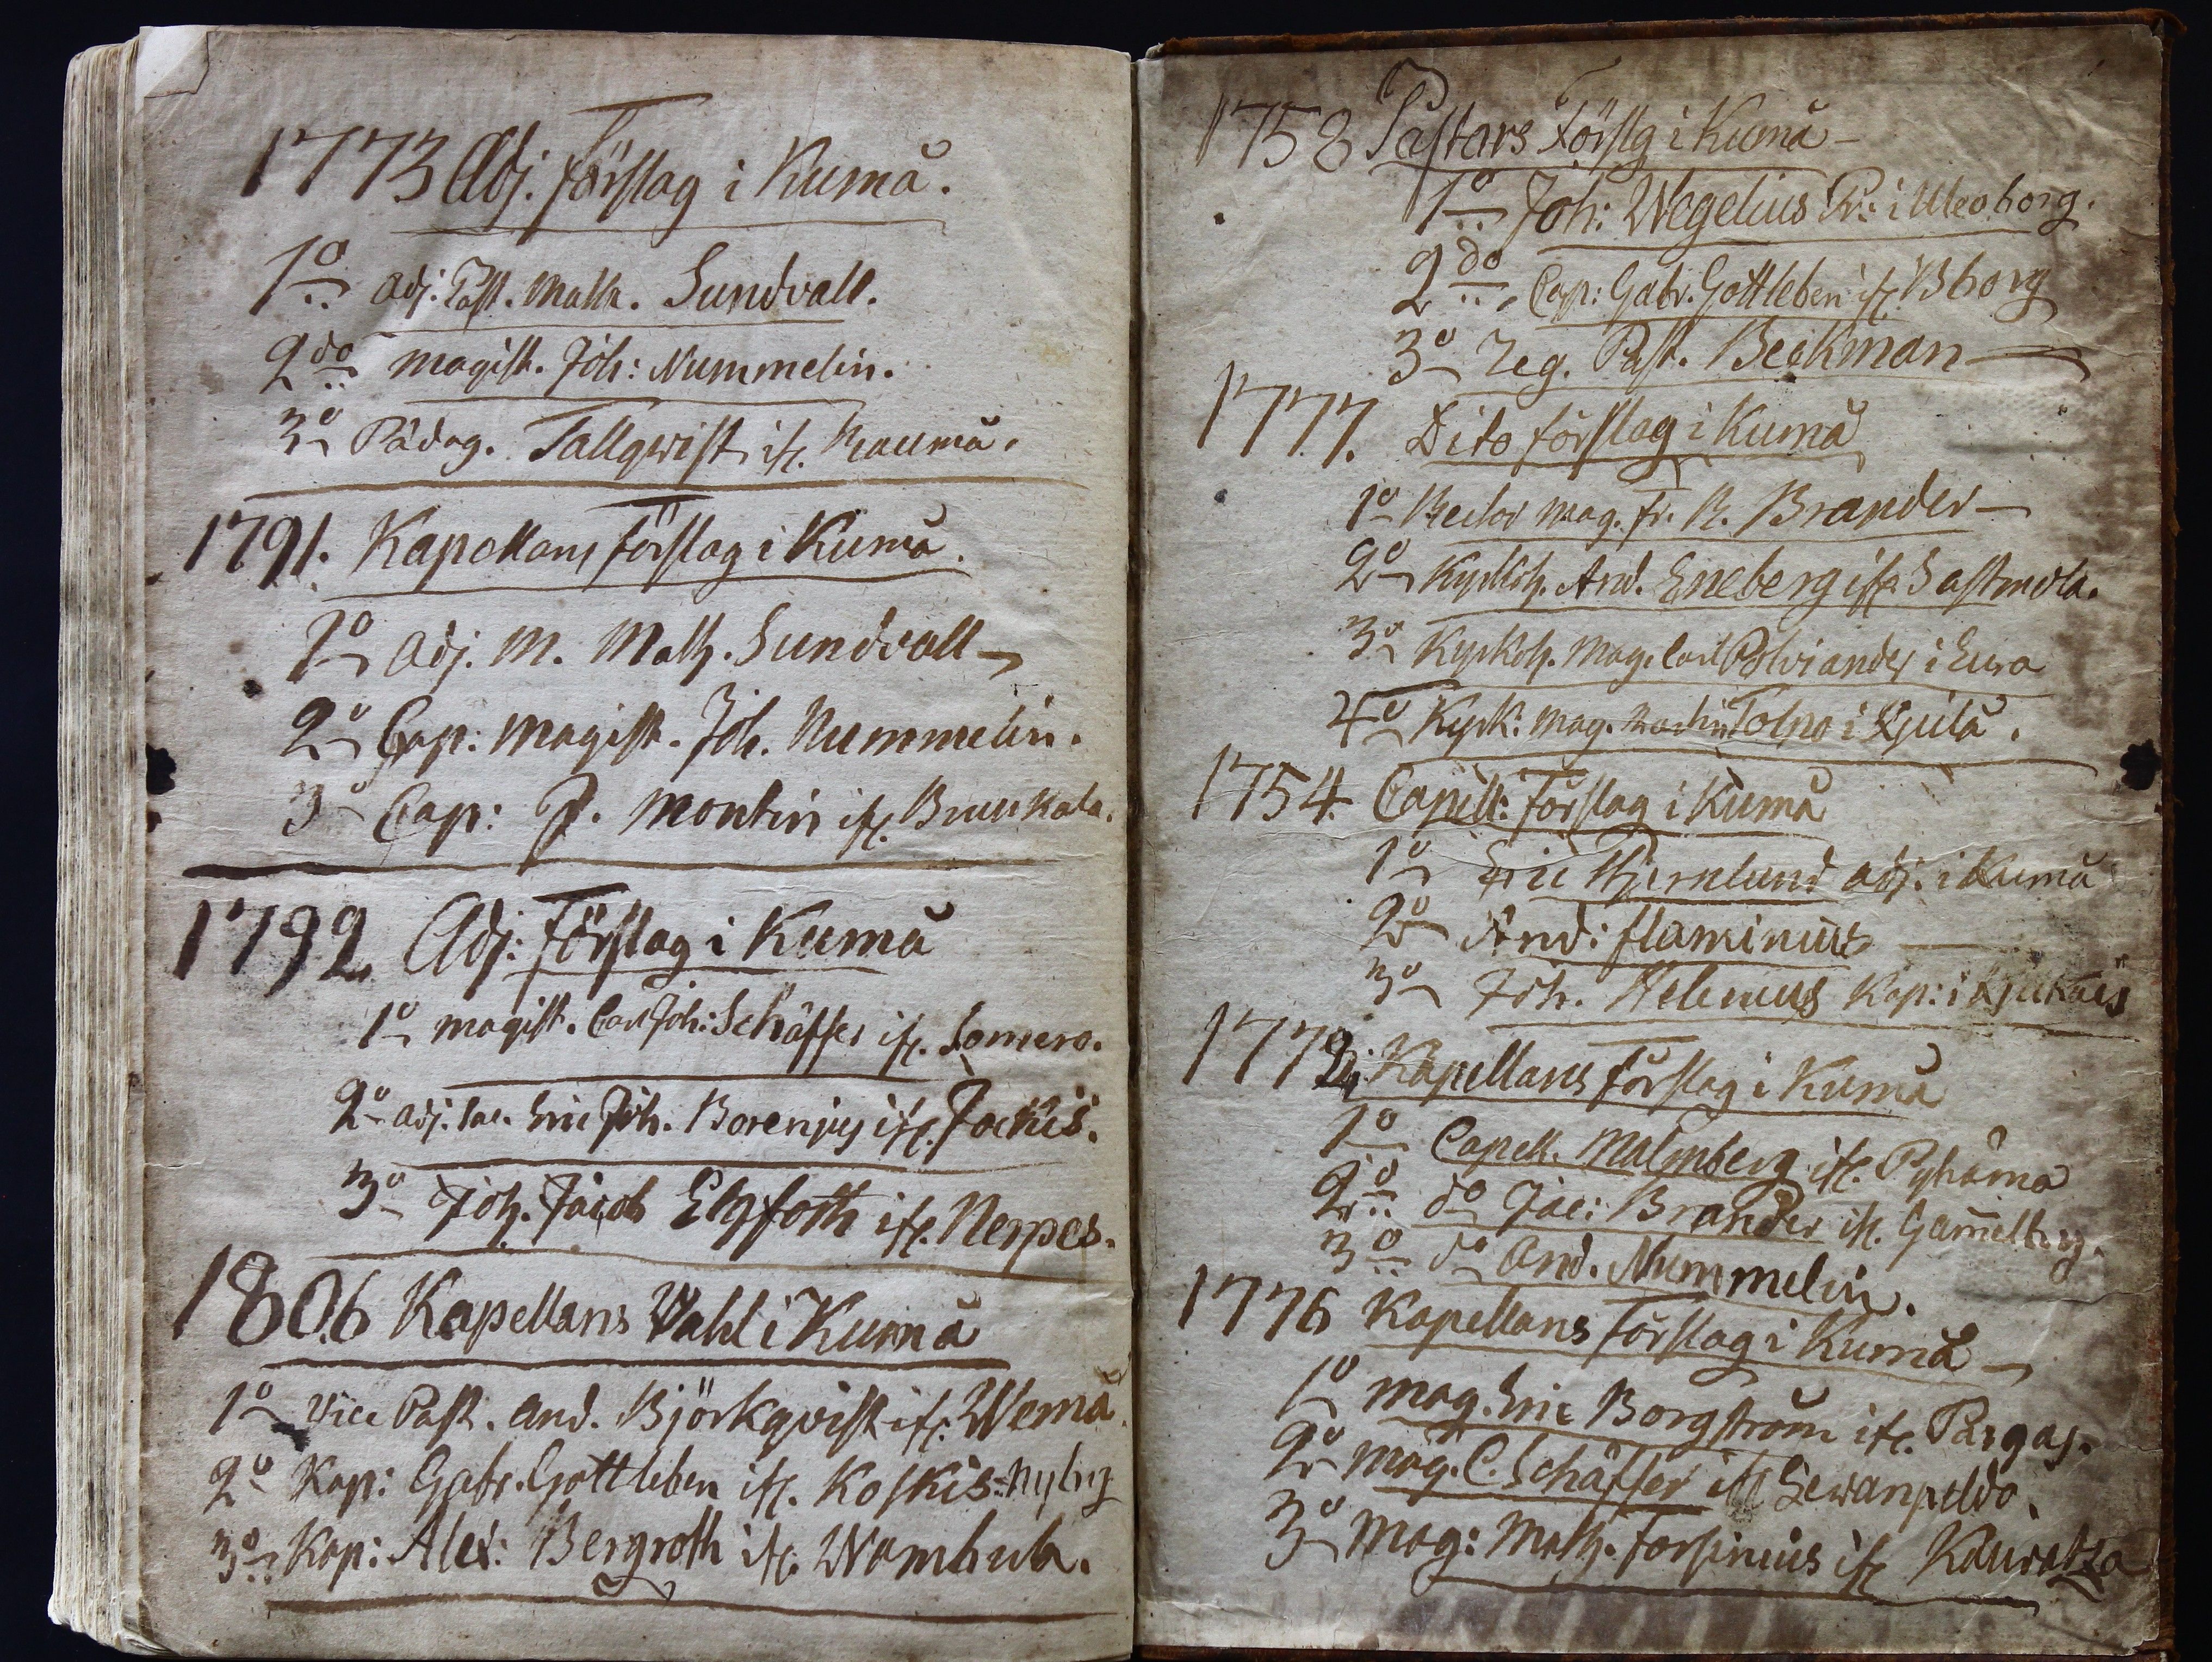 1773 Adj. förslag i Kumå.
1o adj. Past. Math. Sundvall.
2do magist. Joh: Nummelin.
3o Pädag. Tallqwist ifr. Raumå.
1791. Kapellans förslag i Kumå.
1o adj. M. Math. Sundvall
2o Cap: magist. Joh. Nummelin.
3o Cap: J. Montin ifr.
1792 Adj: förslag i Kumå
1o magist. Carl Joh: Schäffer ifr. Somero.
2o adj. Eric Joh. Borenius ifr. Jockis.
3o Joh. Jacob Elgfoth ifr. Nerpes.
1806 Kapellans Wahl i Kumå
1o Vice Past. And. Björkqvist ifr. Wemå
2o Kap: Gabr. Gottleben ifr. Koskis
3o Kap: Alex: Bergroth ifr. Wambula.
1758 Pastors förslg i Kumå
1o Joh: Wegelius Pr: i Uleoborg.
2do Cap: Gabr. Gottleben ifr. Bborg
3o Reg. Past. Beckman
1777. Dito förslag i Kumå
1o Rector mag. fr. R. Brander
2o Kyrkoh. And. Eneberg ifr. Sastmola.
3o Kyrkoh. Mag. Carl Polviander i Eura
4o Kyrk: Mag. Martin Tolpo i Kjulå.
1754. Capell: förslag i Kumå
1o Eric Hjernlund adj. i Kumå
2o And: flaminius
3o Joh. Helenius Kap: i Kjukais
Kapellans förslag i Kumå
1o Capell. Malmberg ifr. Pyhäma
2o do Jac: Brander ifr. Gamelby.
3o do And. Nummelin.
1776 Kapellans förslag i Kumå
1o Mag. Eric Borgström ifr. Pargas.
2o Mag. C. Schäffer ifr Lewanpeldo.
3o Mag: Math. forsinius ifr Kauvatza